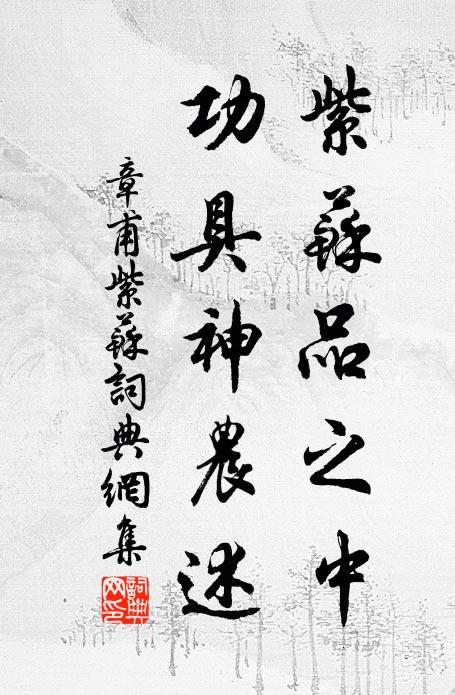 紫蘇品之中
功具神農述
章甫紫蘇詞典網集
詞典網印